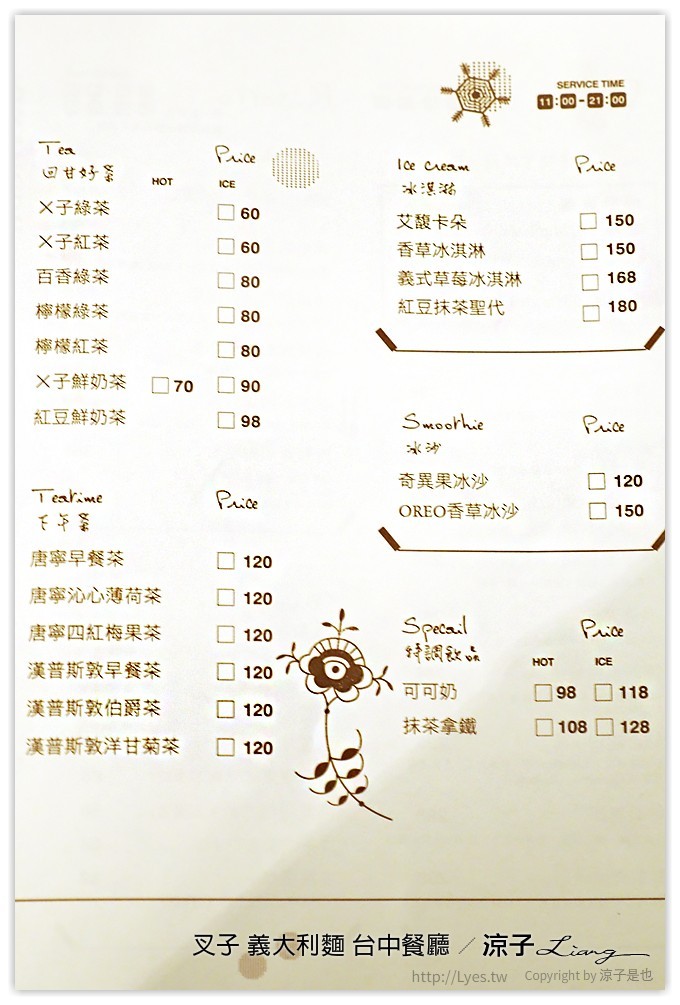 SERVICE TIME
11:00-21:00
Tea Price
回甘好茶 HOT ICE
㐅子綠茶 60
㐅子紅茶 60
百香綠茶 80
檸檬綠茶 80
檸檬紅茶 80
㐅子鮮奶茶 70 90
紅豆鮮奶茶 98
Teatime Price
下午茶
唐寧早餐茶 120
唐寧沁心薄荷茶 120
唐寧四紅梅果茶 120
漢普斯敦早餐茶 120
漢普斯敦伯爵茶 120
漢普斯敦洋甘菊茶 120
Ice cream Price
冰淇淋
艾馥卡朵 150
香草冰淇淋 150
義式草莓冰淇淋 168
紅豆抹茶聖代 180
Smoothie Price
冰沙
奇異果冰沙 120
OREO香草冰沙 150
Specail Price
特調飲品 HOT ICE
可可奶 98 118
抹茶拿鐵 108 128
叉子 義大利麵 台中餐廳 / 涼子 Liang
http://Lyes.tw Copyright by 涼子是也